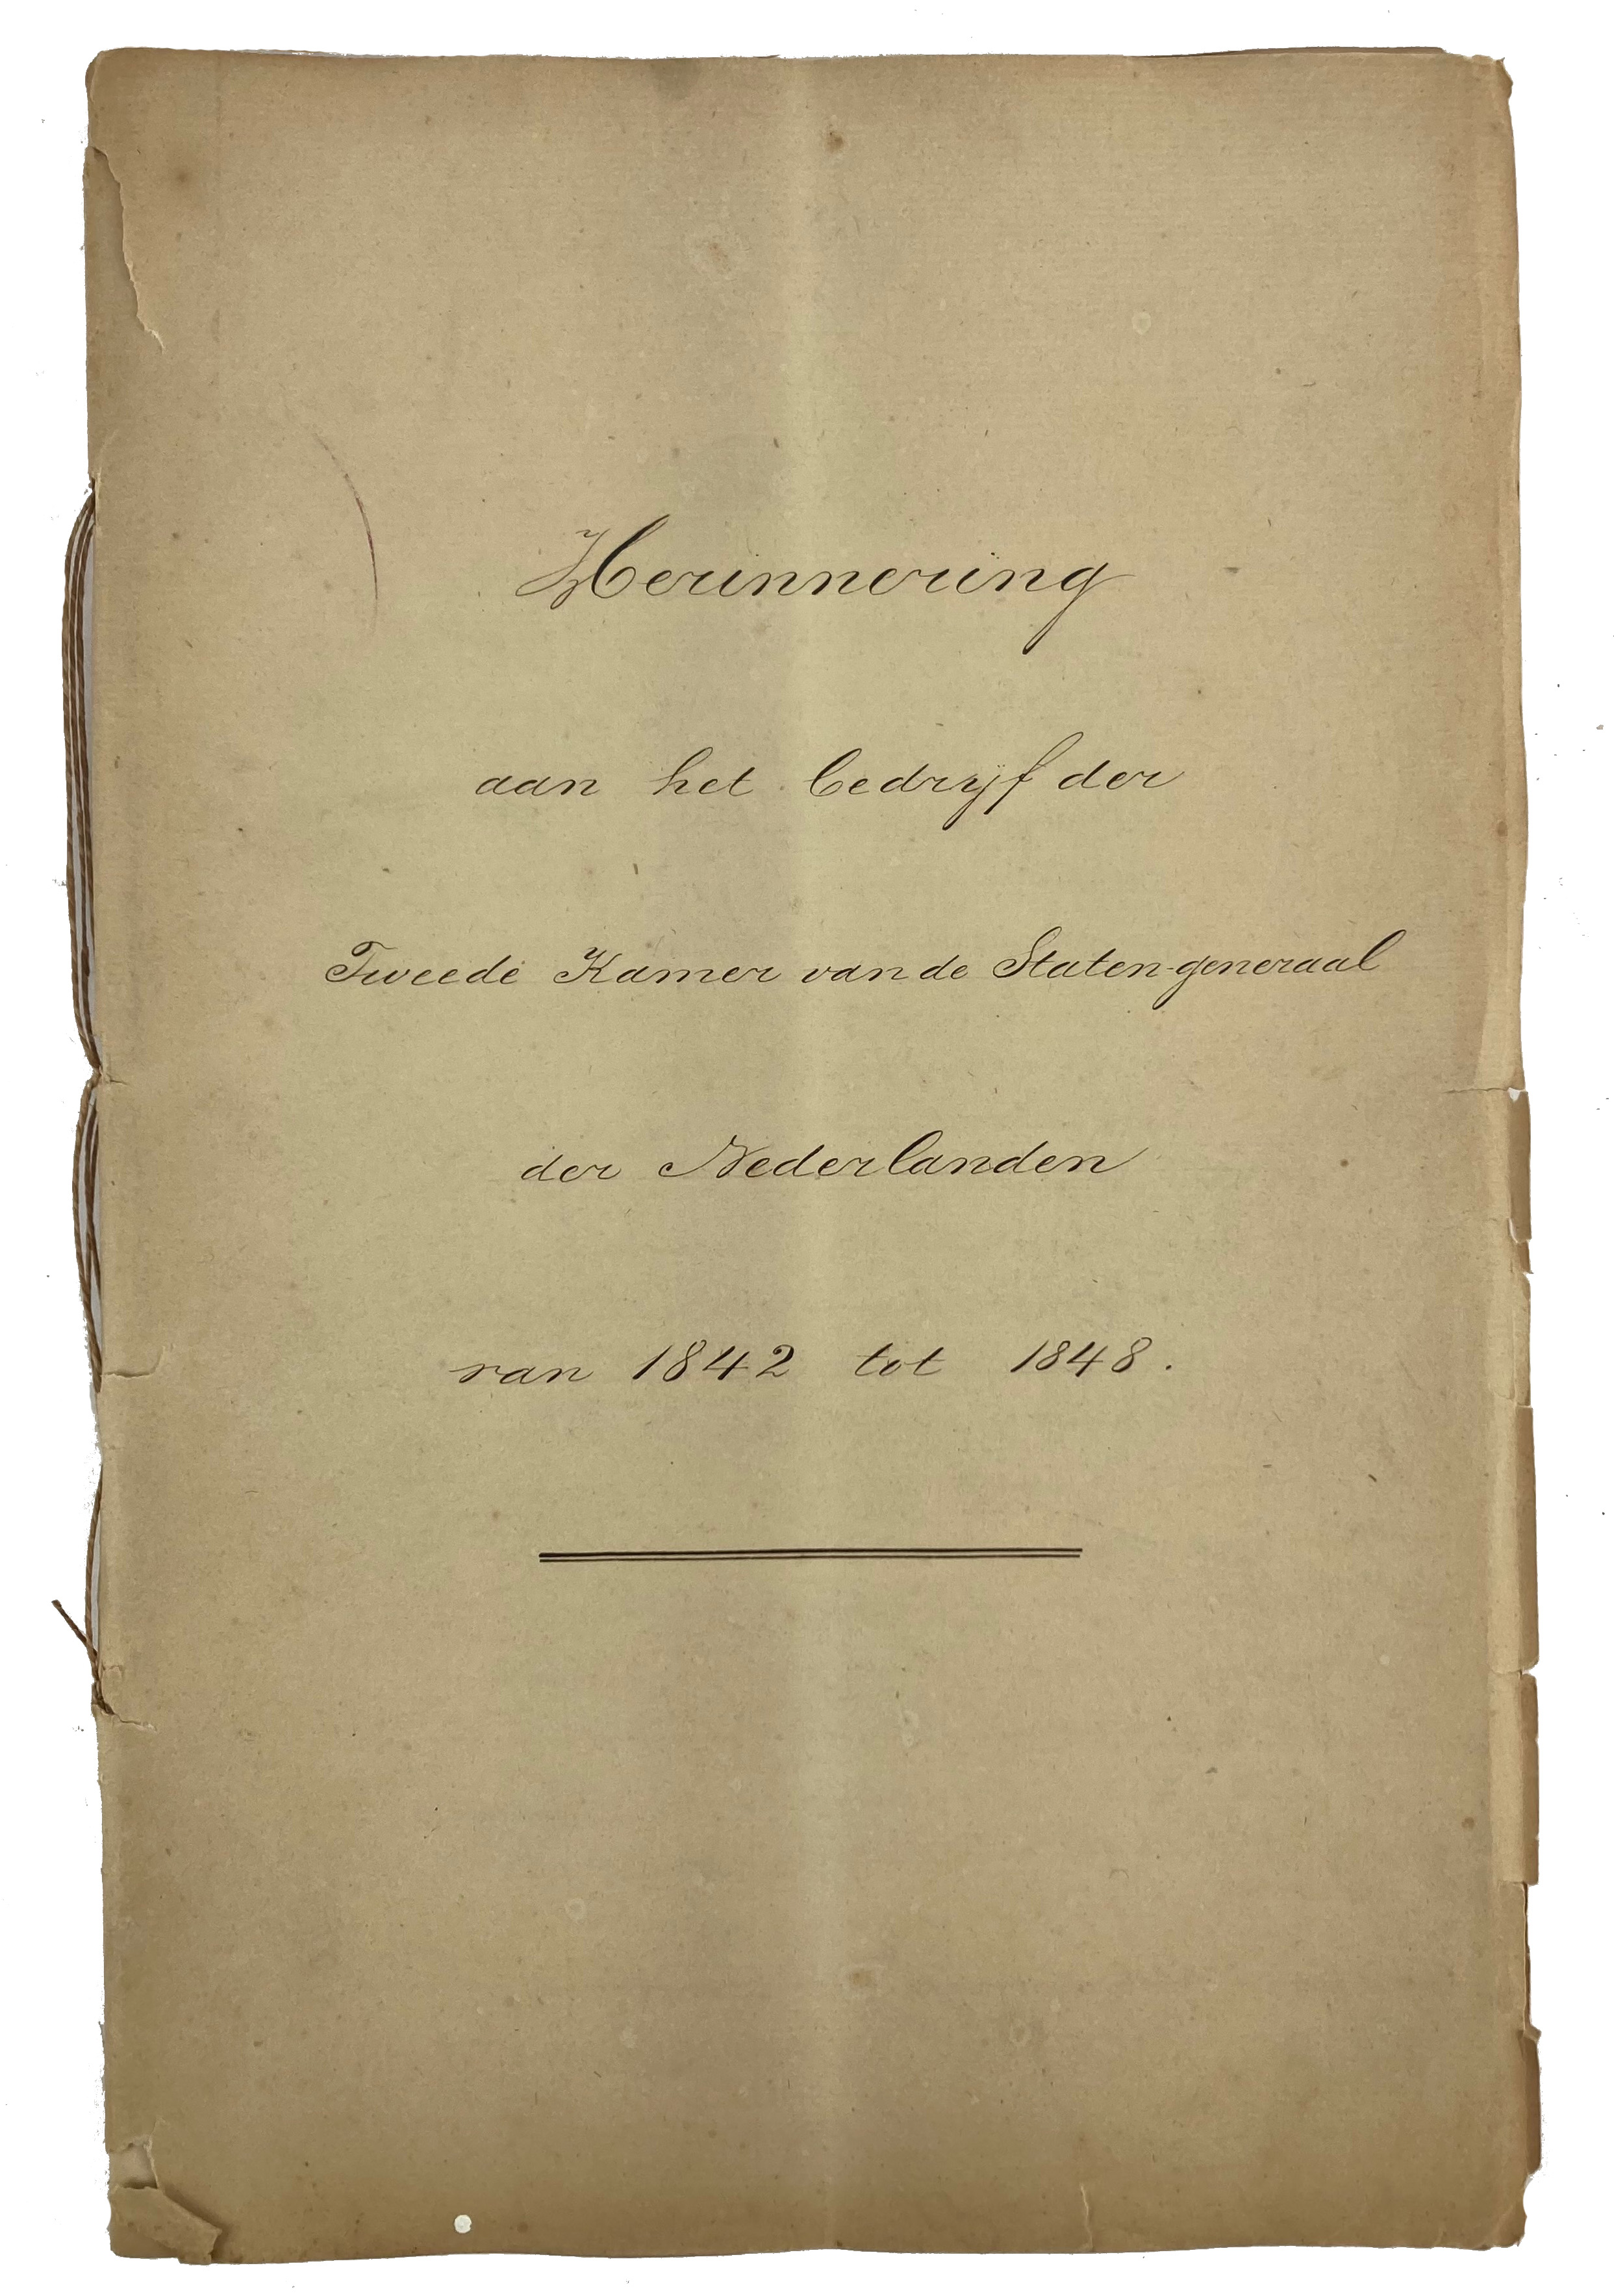 Herinnering
aan het bedrijf der
Tweede Kamer van de Staten-generaal
der Nederlanden
van 1842 tot 1848.